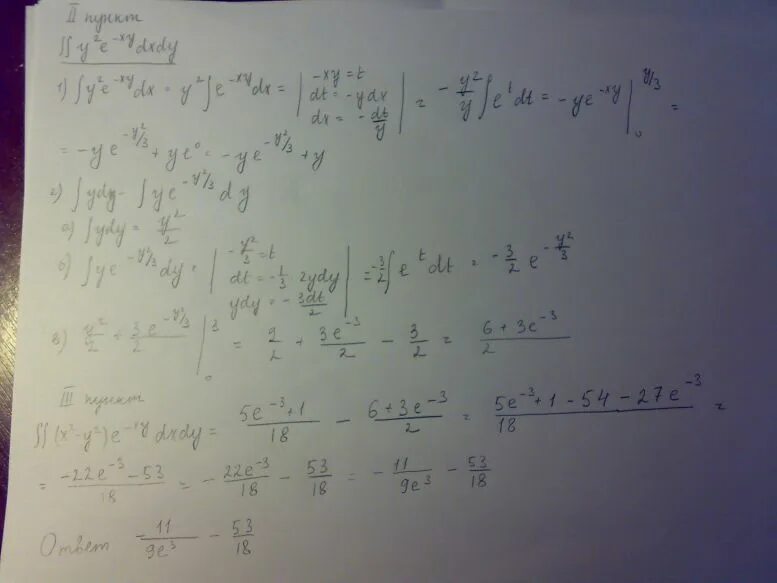 II пункт
∬ y²e^(-xy) dxdy
1) ∫y²e^(-xy) dx = y² ∫e^(-xy) dx = | -xy = t; dt = -ydx; dx = -dt/y | = -y²/y ∫e^t dt = -ye^(-xy) |₀^(y/3) =
= -ye^(-y²/3) + ye⁰ = -ye^(-y²/3) + y
2) ∫ydy - ∫ye^(-y²/3) dy
а) ∫ydy = y²/2
б) ∫ye^(-y²/3) dy = | -y²/3 = t; dt = -1/3 · 2ydy; ydy = -3dt/2 | = -3/2 ∫e^t dt = -3/2 e^(-y²/3)
в) y²/2 + 3e^(-y²/3)/2 |₀³ = 9/2 + 3e^(-3)/2 - 3/2 = (6 + 3e^(-3))/2
III пункт
∬(x²-y²)e^(-xy) dxdy = (5e^(-3)+1)/18 - (6+3e^(-3))/2 = (5e^(-3)+1-54-27e^(-3))/18 =
= (-22e^(-3)-53)/18 = -22e^(-3)/18 - 53/18 = -11/9e³ - 53/18
Ответ -11/9e³ - 53/18